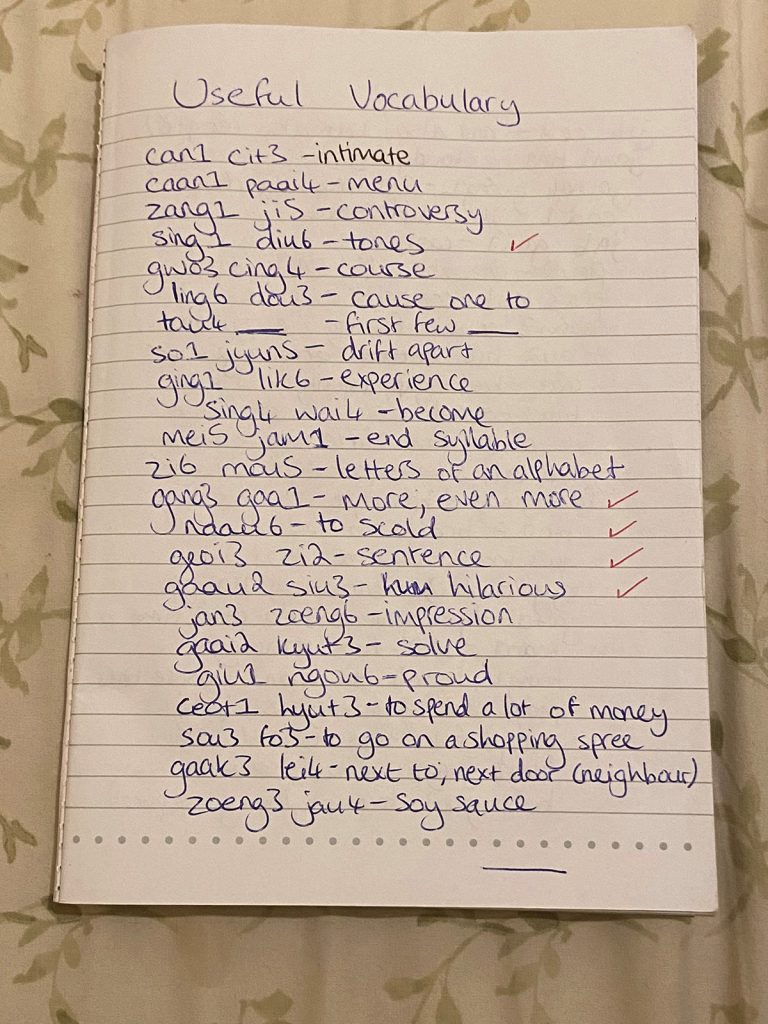 Useful Vocabulary
can1 cit3 - intimate
caan1 paai4 - menu
zang1 ji5 - controversy
sing1 diu6 - tones ✓
gwo3 cing4 - course
ling6 dou3 - cause one to
tau4 ___ - first few ___
so1 jyun5 - drift apart
ging1 lik6 - experience
sing4 wai4 - become
mei5 jam1 - end syllable
zi6 mou5 - letters of an alphabet
gang3 gaa1 - more, even more ✓
naau6 - to scold ✓
geoi3 zi2 - sentence ✓
gaau2 siu3 - hilarious ✓
jan3 zoeng6 - impression
gaai2 kyut3 - solve
giu1 ngou6 - proud
ceot1 hyut3 - to spend a lot of money
sou3 fo3 - to go on a shopping spree
gaak3 lei4 - next to, next door (neighbour)
zoeng3 jau4 - soy sauce